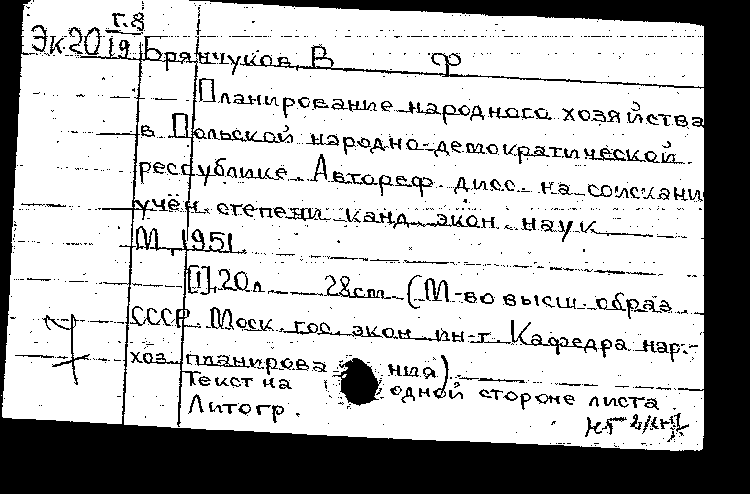 г.8
Эк.20 19 Брянчуков, В Ф
Планирование народного хозяйства
в Польской народно-демократической
республике. Автореф. дисс. на соискани
учён. степени канд. экон. наук
М., 1951.
[1], 20л. 28см (М-во высш. образ.
СССР. Моск. гос. экон. ин-т. Кафедра нар.
хоз. планирования).
Текст на одной стороне листа
Литогр.